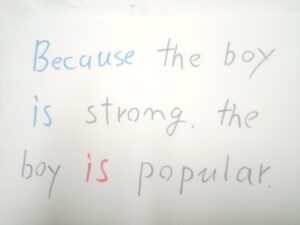 Because the boy
is strong, the
boy is popular.